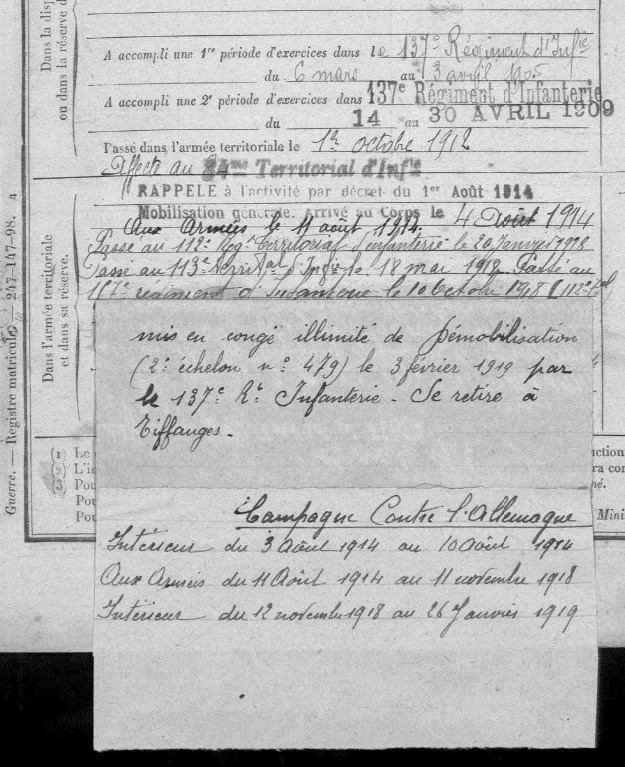 Dans la disp
ou dans la réserve d
A accompli une 1re période d'exercices dans le 137e Régiment d'Infie
du 6 mars au 3 avril 1905
A accompli une 2e période d'exercices dans 137e Régiment d'Infanterie
du 14 au 30 AVRIL 1909
Passé dans l'armée territoriale le 1er octobre 1912
Affecté au 84me Territorial d'Infie
RAPPELE à l'activité par décret du 1er Août 1914
Mobilisation générale. Arrivé au Corps le 4 Août 1914
Aux Armées le 11 août 1914.
Passé au 112e Régt Territorial d'infanterie le 20 Janvier 1918
Passé au 113e Territal d'Infie le 18 mai 1918. Passé au
régiment d'Infanterie le 10 Octobre 1918
Dans l'armée territoriale
et dans sa réserve.
mis en congé illimité de Démobilisation
(2e échelon no 479) le 3 février 1919 par
le 137e Rt Infanterie. Se retire à
Tiffauges.
(1) Le
(2) L'i
(3) Pou
Pou
Pou
Mini
Guerre. — Registre matricule. — 247-147-98.
Campagne Contre l'Allemagne
Intérieur du 3 Août 1914 au 10 Août 1914
Aux Armées du 11 Août 1914 au 11 novembre 1918
Intérieur du 12 novembre 1918 au 26 Janvier 1919